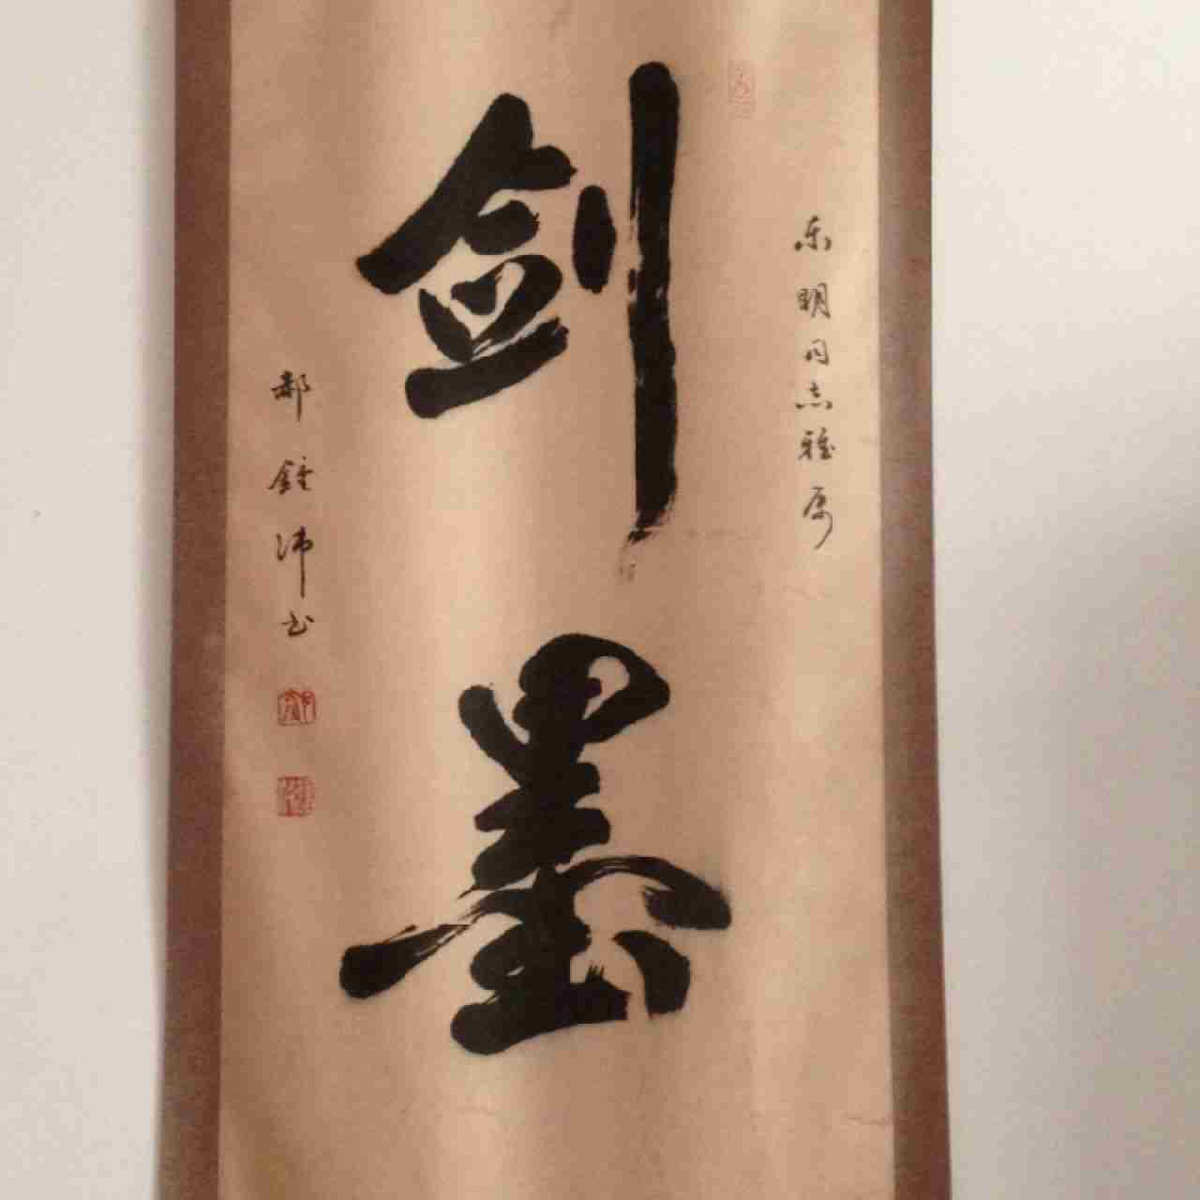 东明同志雅属
剑墨
郝钟沛书